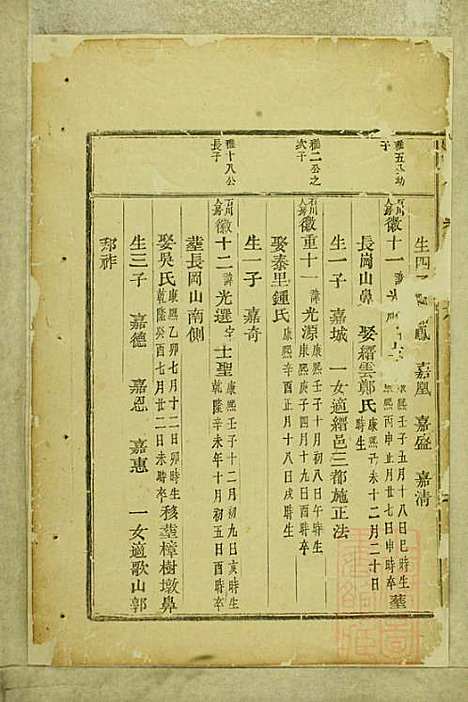 生四 嘉鳳 嘉凰 嘉盛 嘉清
雅五公幼子
石川人房 徽十一 諱 康熙壬子五月十八日巳時生 康熙丙申正月廿七日申時卒 葬
長崗山鼻 娶縉雲鄭氏 康熙乃未十二月二十日時生
生一子 嘉城 一女適縉邑三都施正法
雅二公之次子
石川人房 徽重十一 諱光源 康熙壬子十月初八日午時生 康熙庚子四月十九日寅時卒
娶泰里鍾氏 康熙辛酉正月十八日戌時生
生一子 嘉奇
雅十八公長子
石川人房 徽十二 諱光選 字士聖 康熙壬子十二月初九日亥時生 乾隆辛未年十月初五日酉時卒
葬長岡山南側
娶吳氏 康熙乙卯七月十二日卯時生 乾隆癸酉七月廿二日未時卒 移葬樟樹墩鼻
生三子 嘉德 嘉恩 嘉惠 一女適歌山郭
邦祚